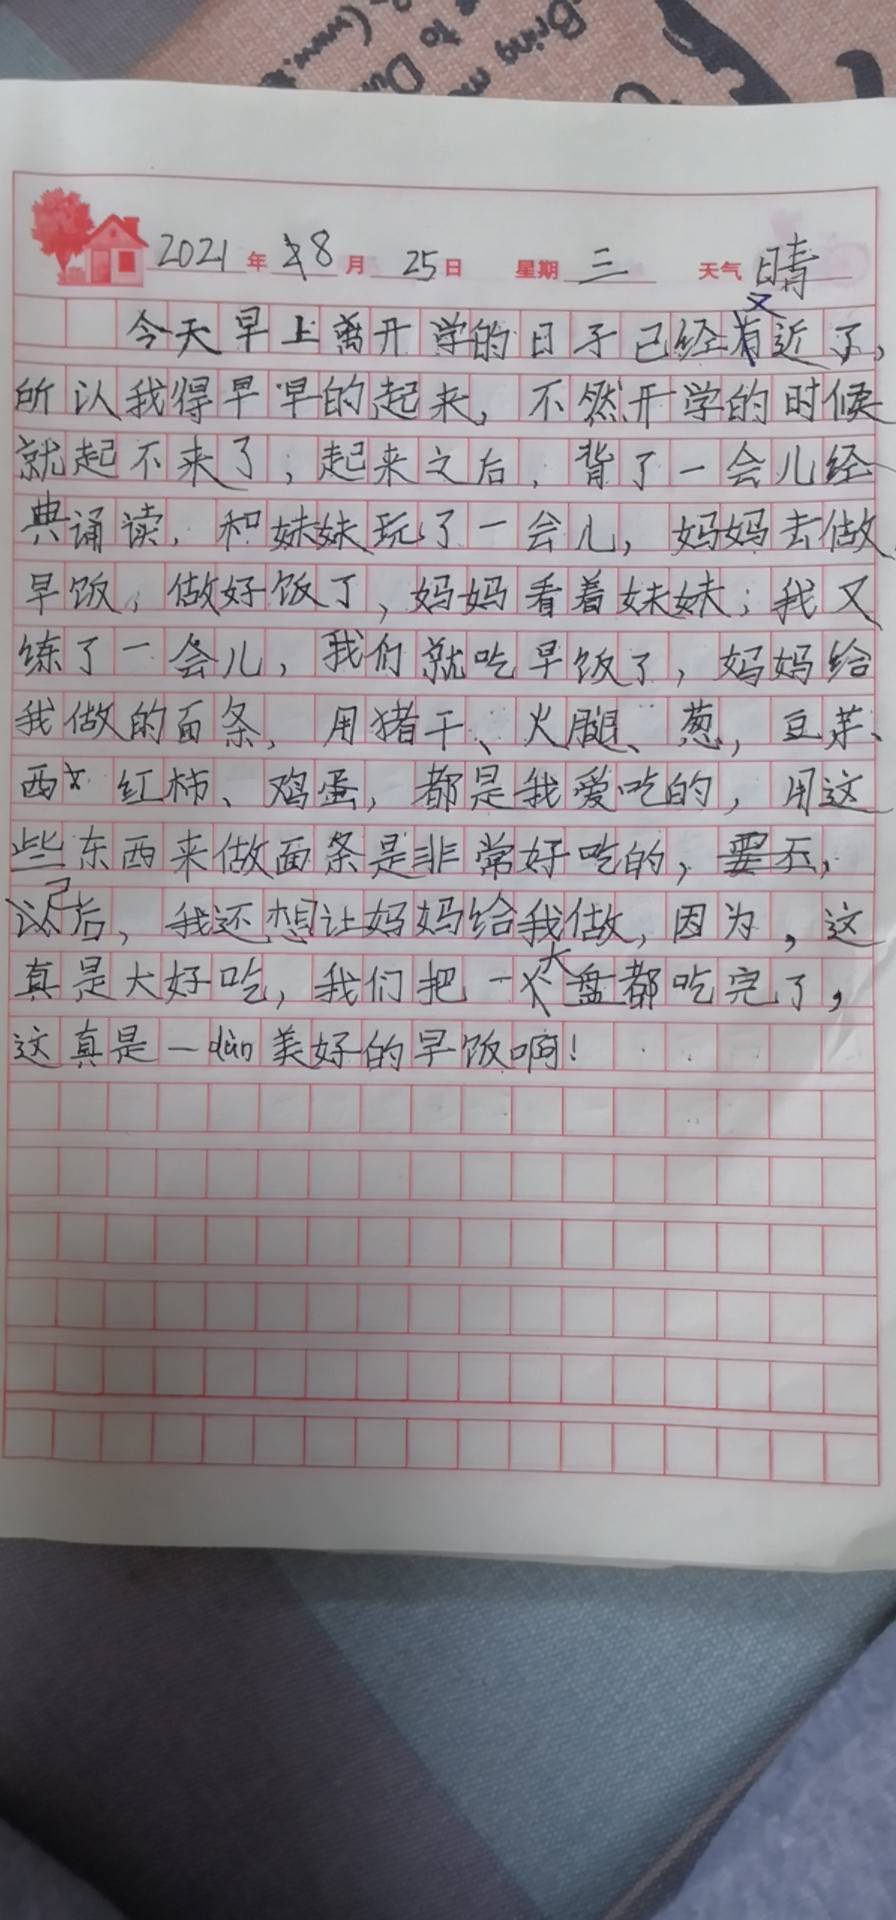 Bring me
to Du
(www.
2021 年 8 月 25 日 星期 三 天气 晴
今天早上离开学的日子已经又近了,
所认我得早早的起来,不然开学的时候
就起不来了,起来之后,背了一会儿经
典诵读,和妹妹玩了一会儿,妈妈去做
早饭,做好饭了,妈妈看着妹妹,我又
练了一会儿,我们就吃早饭了,妈妈给
我做的面条,用猪干、火腿、葱,豆芽、
西红柿、鸡蛋,都是我爱吃的,用这
些东西来做面条是非常好吃的,
以后,我还想让妈妈给我做,因为,这
真是太好吃,我们把一大盘都吃完了,
这真是一dùn美好的早饭啊!